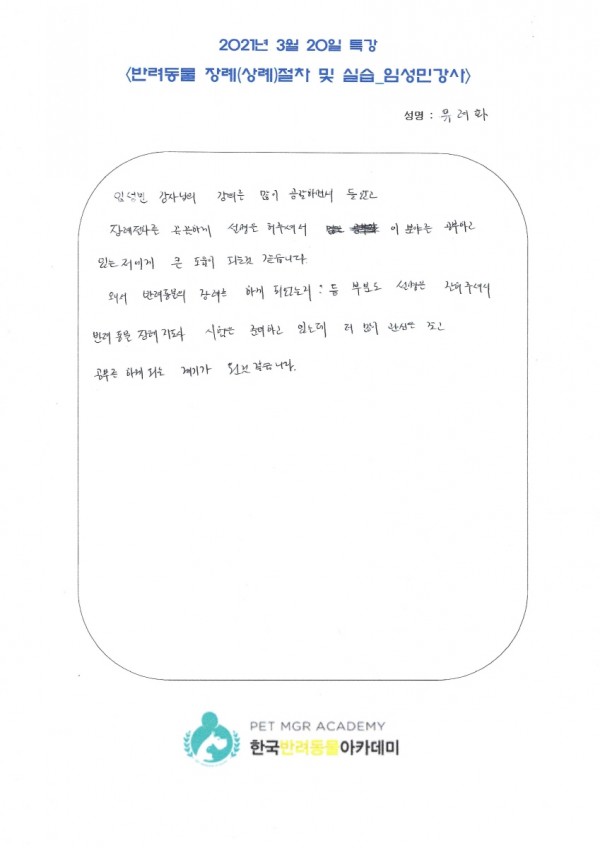 2021년 3월 20일 특강
<반려동물 장례(상례)절차 및 실습_임성민강사>
성명 : 유려화
임성민 강사님의 강의를 많이 공감하면서 들었고
장례절차를 꼼꼼하게 설명을 해주셔서 이 분야를 공부하고
있는 저에게 큰 도움이 되는것 같습니다
왜서 반려동물의 장례를 하게 되었는지 : 등 부분도 설명을 잘해 주셔서
반려 동물 장례 지도사 시험을 준비하고 있는데 더 많이 관심을 갖고
공부를 하게 되는 계기가 된것 같습니다.
PET MGR ACADEMY
한국반려동물아카데미